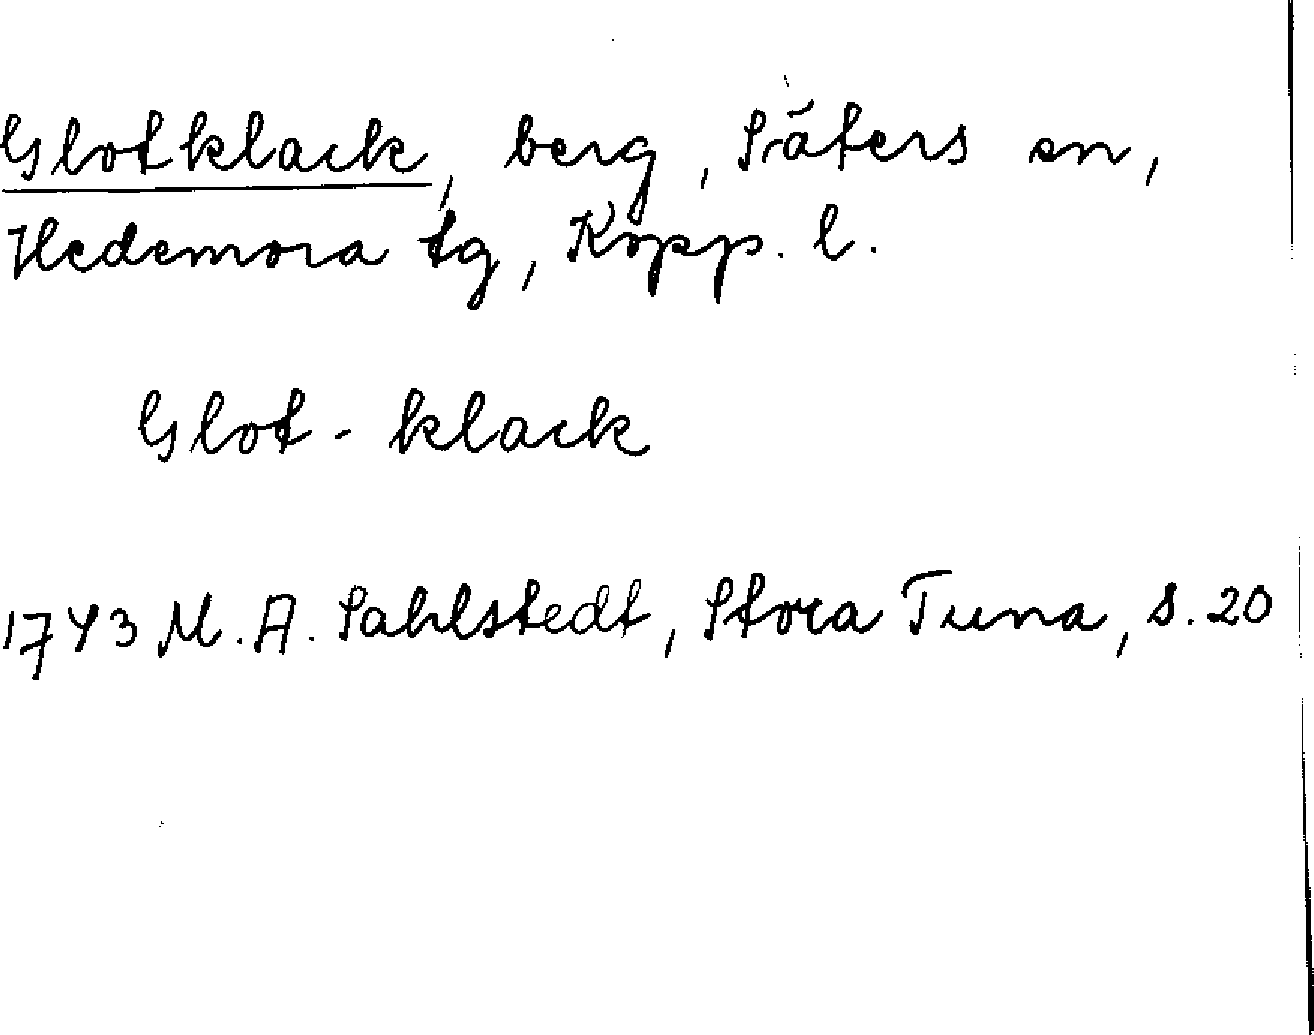 Glotklack, berg, Säters sn,
Hedemora tg, Kopp. l.
Glot-klack
1743 M. A. Sahlstedt, Stora Tuna, s. 20